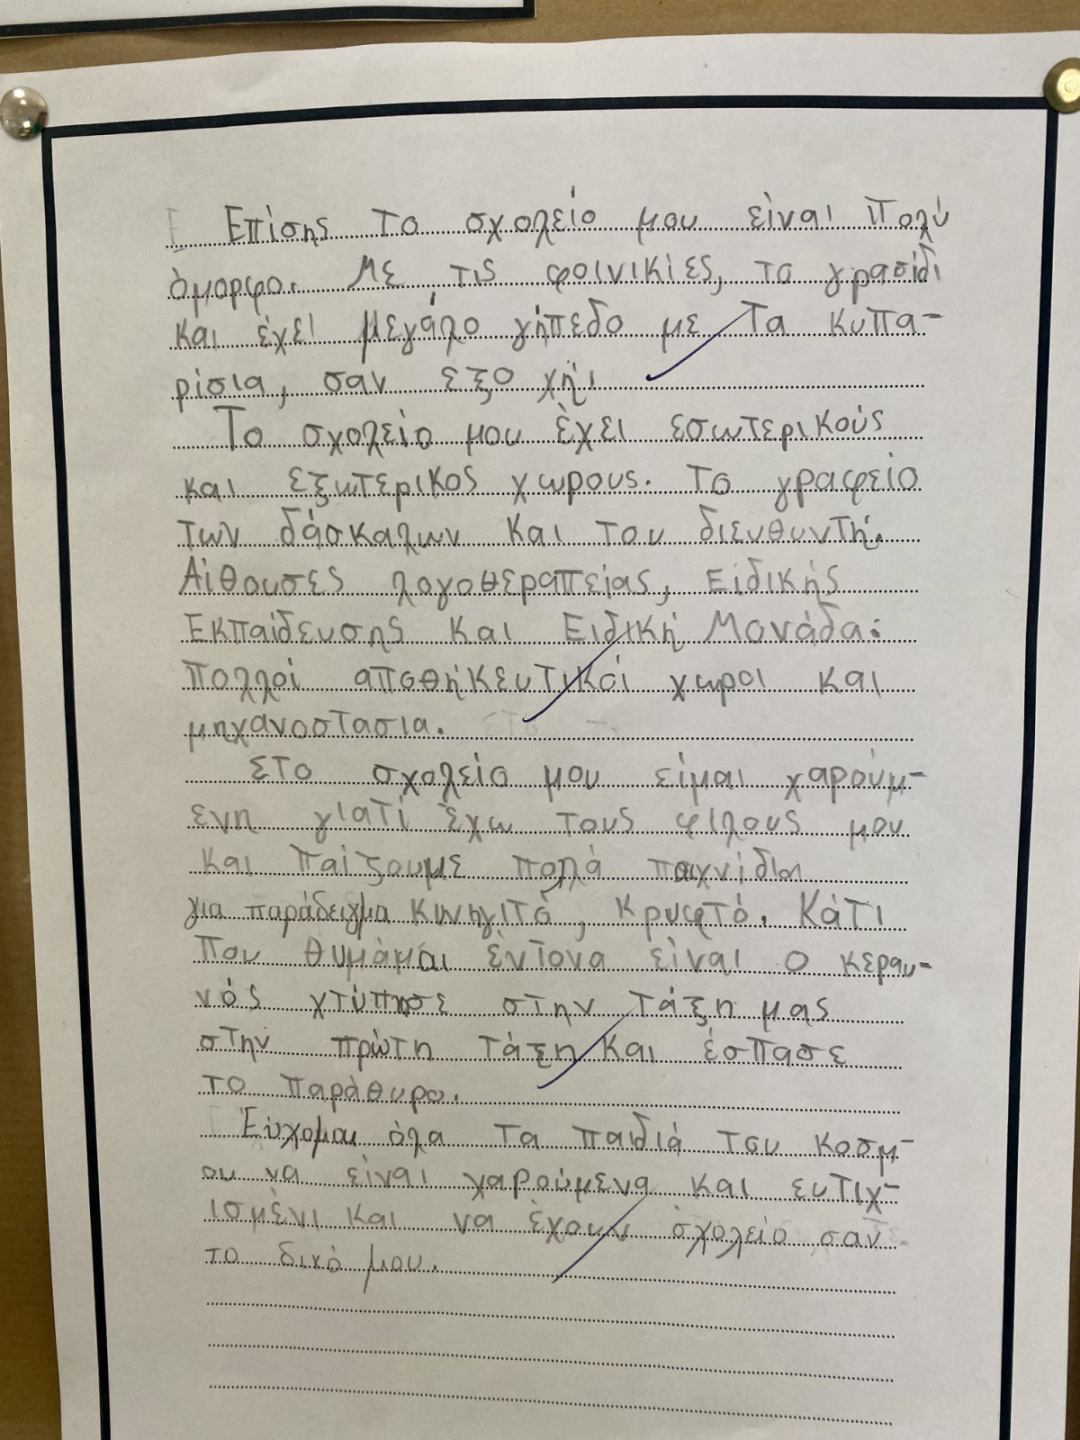 Επίσης το σχολείο μου είναι πολύ
όμορφο. Με τις φοινικιές, το γρασίδι
και έχει μεγάλο γήπεδο με τα κυπα-
ρίσια, σαν εξο χή.
Το σχολείο μου έχει εσωτερικούς
και εξωτερικος χωρους. Το γραφείο
των δάσκαλων και του διευθυντή.
Αίθουσες λογοθεραπείας, Ειδικής
Εκπαίδευσης και Ειδική Μονάδα.
Πολλοί αποθήκευτικοί χωροι και
μηχανοστασια.
Στο σχολείο μου είμαι χαρούμ-
ενη γιατί έχω τους φιλους μου
και παίζουμε πολά παιχνίδια
για παράδειγμα κινηγιτό, κρυφτό. Κάτι
που θυμάμαι έντονα είναι ο κεραυ-
νός χτύπησε στην τάξη μας
στην πρώτη τάξη και έσπασε
το παράθυρο.
Εύχομαι όλα τα παιδιά του κοσμ-
ου να είναι χαρούμενα και ευτιχ-
ισμένι και να έχουν σχολείο σαν
το δικό μου.